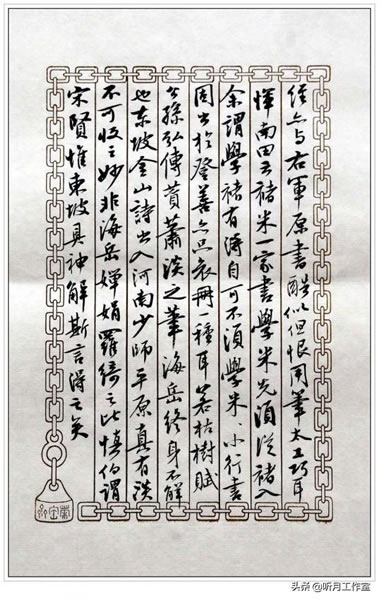 經亦与右軍原書酷似但恨用筆太工巧耳
惲南田云褚米一家書學米先須從褚入
余謂學褚有得自可不須學米小行書
固出於登善亦只哀冊一種耳若枯樹賦
公孫弘傳贊蕭淡之筆海岳終身不解
也東坡金山詩出入河南少師平原真有淡
不可收之妙非海岳嬋娟羅綺之比慎伯謂
宋賢惟東坡具神解斯言得之矣
头条 @听月工作室